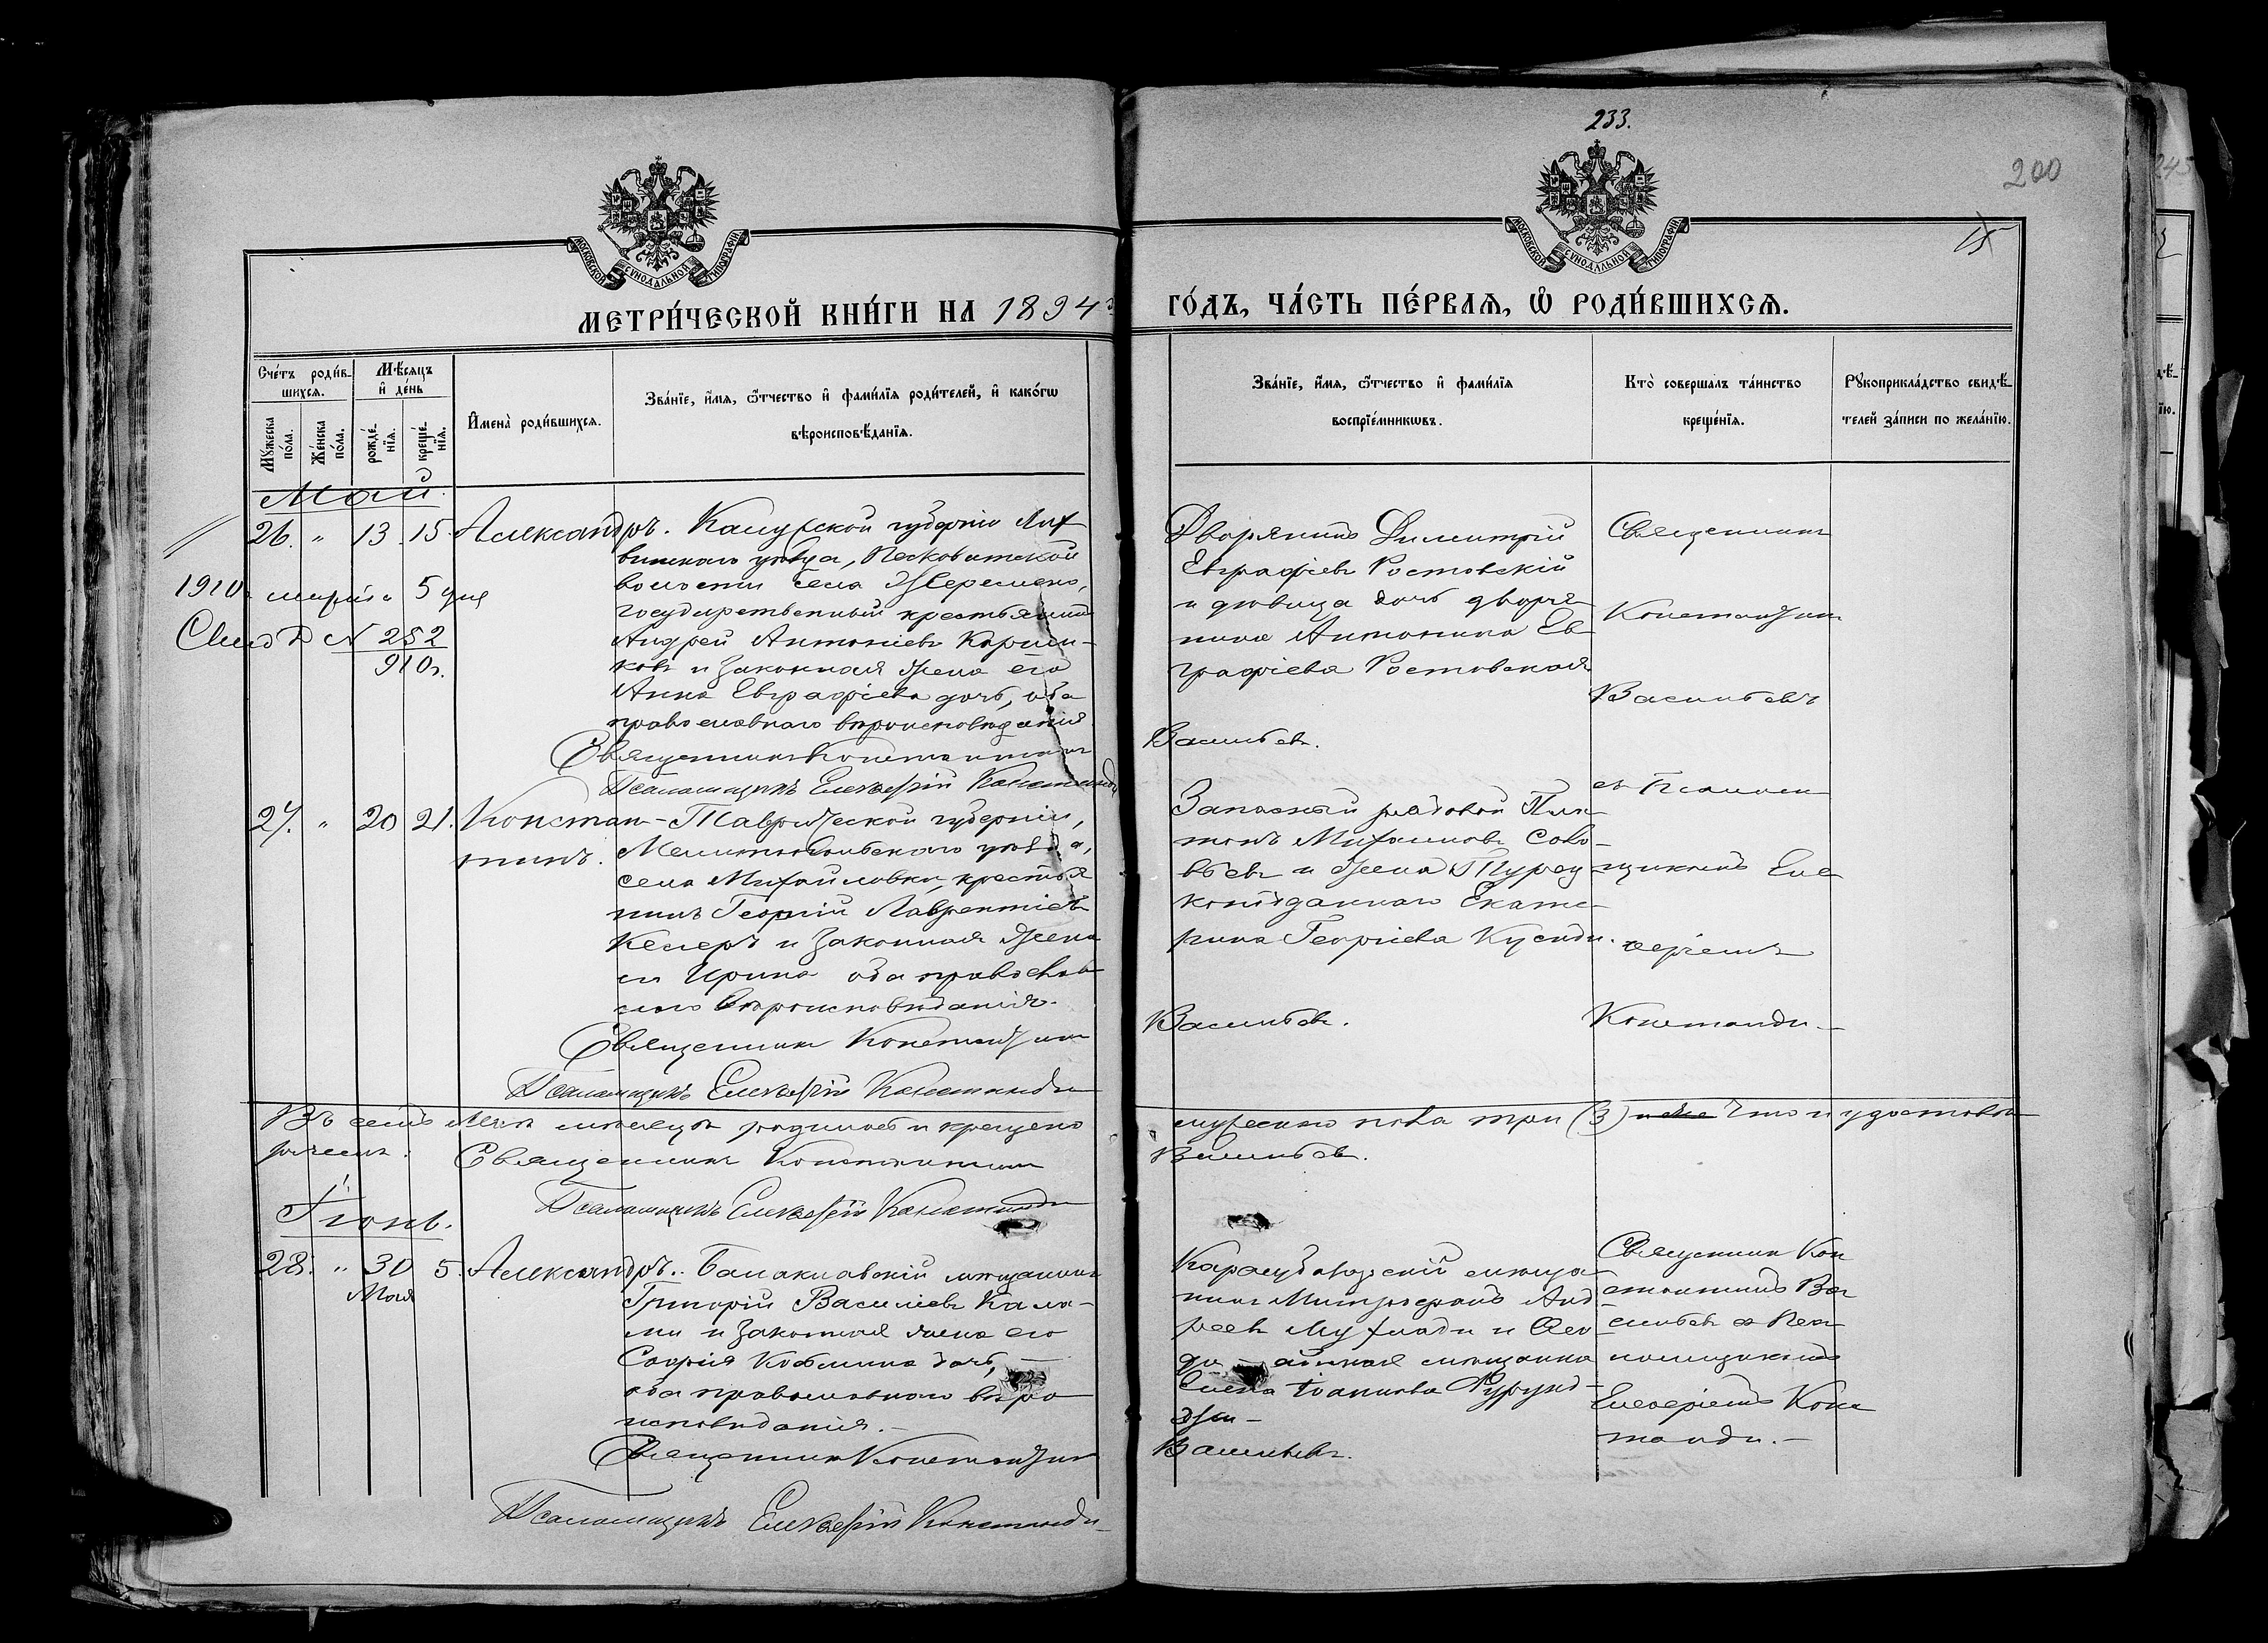 233.
200
МОСКОВСКОЙ СѴНОДАЛЬНОЙ ТИПОГРАФІИ
МОСКОВСКОЙ СѴНОДАЛЬНОЙ ТИПОГРАФІИ
МЕТРИ́ЧЕСКОЙ КНИ́ГИ НА 1894
ГО́ДЪ, ЧА́СТЬ ПЕ́РВАЯ, Ѡ҆ РОДИ́ВШИХСЯ.
Сче́тъ роди́вшихся.
Мꙋ́жеска по́ла.
Же́нска по́ла.
Мѣ́сяцъ и҆ де́нь
рожде́нїя.
креще́нїя.
И҆мена̀ роди́вшихся.
Зва́нїе, и҆́мя, ѻ҆́тчество и҆ фами́лїя роди́телей, и҆ како́гѡ
вѣроисповѣ́данїя.
Зва́нїе, и҆́мя, ѻ҆́тчество и҆ фами́лїя
воспрїе́мникѡвъ.
Кто̀ соверша́лъ та́инство
креще́нїя.
Рꙋкоприкла́дство свидѣ́-
телей за́писи по жела́нїю.
Май.
26. " 13 15 Александръ. Калужской губерніи Лих-
винскаго уѣзда, Песковатской
волости села Жеремено,
государственный крестьянинъ
Андрей Антоніевъ
и законная жена его
Анна Евграфіева дочь, оба
православнаго вѣроисповѣданія
Священникъ Константинъ
Псаломщикъ Елевферій Констанди
1910 5 дня
№ 252
910г.
Дворянинъ Димитрій
Евграфіевъ Ростовскій
и дѣвица дочь дворя-
нина Антонина Ев-
графіева Ростовская
Васильевъ.
Священникъ
Константинъ
Васильевъ
съ Псалом-
щикомъ Еле-
веріемъ
Констанди
27. " 20 21. Констан- Таврической губерніи,
тинъ. Мелитопольскаго уѣзда,
села Михайловки, крестья-
нинъ Георгій Лаврентіевъ
и законная жена
его Ирина оба православ-
наго вѣроисповѣданія.
Священникъ Константинъ
Псаломщикъ Елевферій Констанди
Запасный рядовой Пла-
тонъ Михаиловъ Соло-
вьевъ и жена Турец-
коподданнаго Екате-
рина Георгіева
Васильевъ.
Въ семъ Маѣ мѣсяцѣ родилось и крещено
мужскаго пола три (3) Что и удостовѣ-
ряемъ.
Священникъ Константинъ
Васильевъ.
Псаломщикъ Елевферій Констанди
Іюнь.
28. " 30 5. Александръ. Балаклавскій мѣщанинъ
Мая
Григорій Василіевъ
и законная жена его
Софія Козьмина дочь,
оба православнаго вѣро-
исповѣданія.
Священникъ Константинъ
Псаломщикъ Елевферій Констанди
Карасубазарскій мѣща-
нинъ Митрофанъ Анд-
реевъ и Ѳео-
мѣщанка
Елена Іоаннова
Васильевъ.
Священникъ Кон-
стантинъ Ва-
сильевъ съ Пса-
ломщикомъ
Елеферіемъ Конс-
танди.